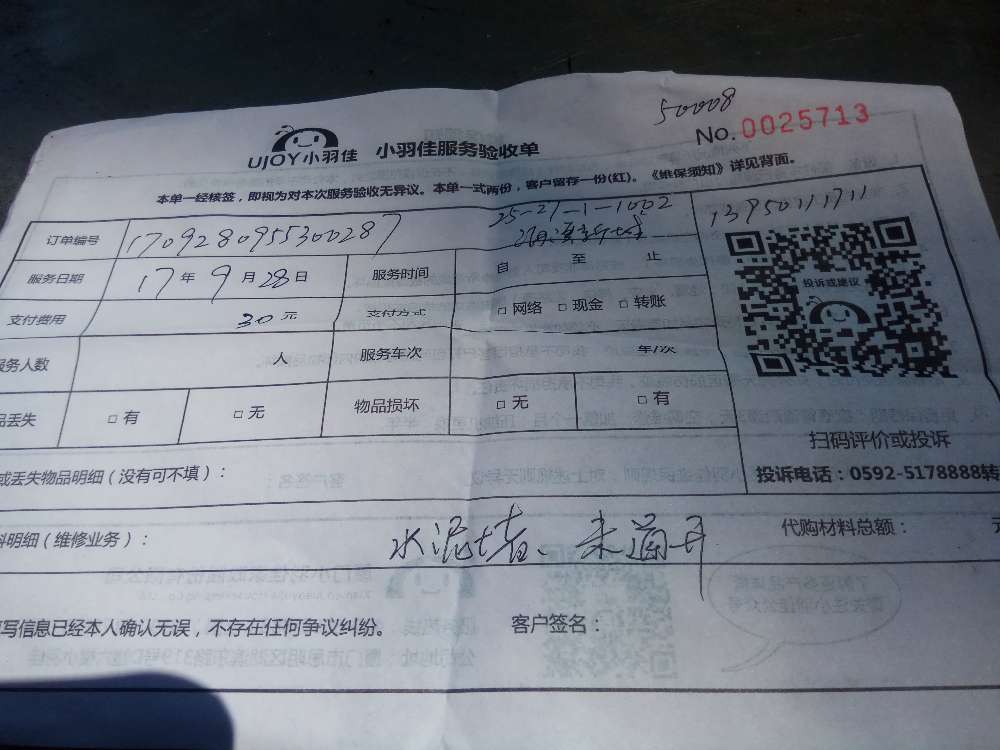 50008
No.0025713
UJOY小羽佳 小羽佳服务验收单
本单一经核签，即视为对本次服务验收无异议。本单一式两份，客户留存一份(红)。《维保须知》详见背面。
订单编号 1709280955300287 25-27-1-1002 13950111711
服务日期 17年9月28日 服务时间 自 至 止
支付费用 30元 支付方式 □网络 □现金 □转账
服务人数 人 服务车次 车/次
品丢失 □有 □无 物品损坏 □无 □有
投诉或建议
扫码评价或投诉
投诉电话：0592-5178888转
或丢失物品明细（没有可不填）：
料明细（维修业务）： 水泥堵、未通开 代购材料总额： 元
写信息已经本人确认无误，不存在任何争议纠纷。 客户签名：